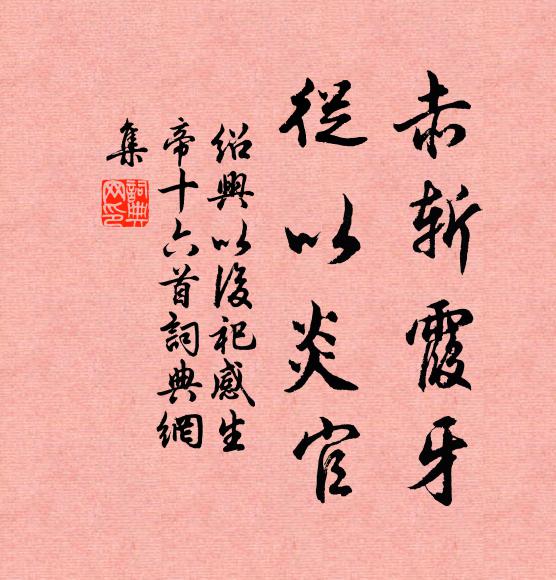 赤斩霞牙
從以炎官
紹興以後祀感生
帝十六首詞典網
集
詞典
网印